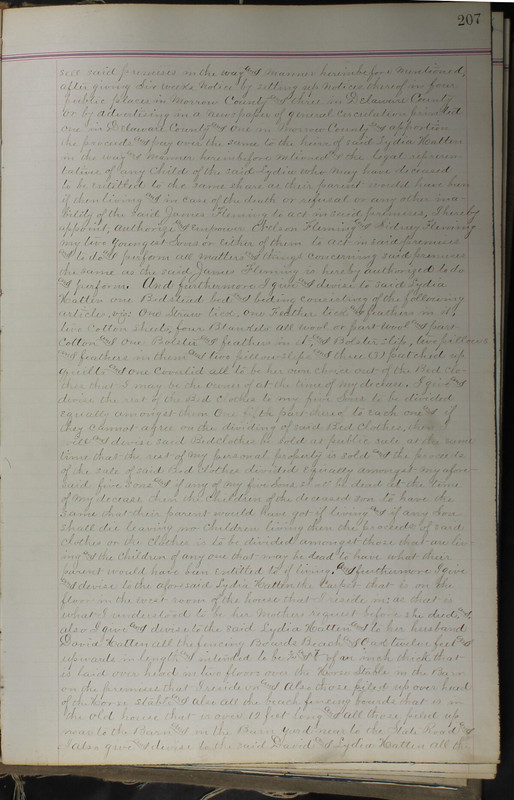 207
sell said premises in the way & manner hereinbefore mentioned,
after giving Six weeks Notice by setting up Notices thereof in four
public places in Morrow County & three in Delaware County
or by advertising in a Newspaper of general circulation printed
one in Delaware County & one in Morrow County & apportion
the proceeds & pay over the same to the heirs of said Lydia Hatten
in the way & manner hereinbefore & the legal represen
tative of any Child of the said Lydia who may have deceased
to be entitled to the same share as their parent would have been
if then living & in case of the death or refusal or any other ina
bility of the said James Fleming to act in said premises, I hereby
appoint, authorize & empower Fleming & Sidney Fleming
my two youngest Sons or either of them to act in said premises
& to do & perform all matters & things concerning said premises
the same as the said James Fleming is hereby authorized to do
& perform. And furthermore I give & devise to said Lydia
Hatten one Bedstead bed & beding consisting of the following
articles, viz: One Straw tick, one Feather tick & feathers in it,
two Cotton sheets, four Blankets all wool or part wool & part
Cotton & One Bolster & feathers in it & Bolster slip, two pillows
& feathers in them & two pillow slips & three (3) patched up
quilts & one Coverlid all to be her own choice out of the Bed clo-
thes that I may be the owner of at the time of my decease. I give &
devise the rest of the Bed Clothes to my five Sons to be divided
equally amongst them One fifth part shared to each one & if
they cannot agree on the dividing of said Bed Clothes, then I
will & devise said Bedclothes be sold at public sale at the same
time that the rest of my personal property is sold & the proceeds
of the sale of said Bed Clothes divided equally amongst my afore-
said five sons & if any of my five Sons should be dead at the time
of my decease then the Children of the deceased son to have the
same that their parent would have got if living & if any Son
shall die leaving no Children living then the proceeds of said
Clothes or the Clothes is to be divided amongst those that are liv-
ing & the Children of any one that may be dead to have what their
parent would have been entitled to if living. And furthermore I give
& devise to the aforesaid Lydia Hatten the Carpet that is on the
floor in the west room of the house that I reside in: as that is
what I understood to be her Mothers request before she died, &
also I give & devise to the said Lydia Hatten & to her husband
David Hatten all the fencing Boards Beech & Oak twelve feet &
upwards in length & intended to be of an inch thick that
is laid over head in two floors over the Horse Stable in the Barn
on the premises that I reside on & Also those piled up over head
of the Horse Stable & also all the beech fencing boards that is in
the old house that is over 12 feet long & all those piled up
near to the Barn & in the Barn yard near to the State Road &
I also give & devise to the said David & Lydia Hatten all the